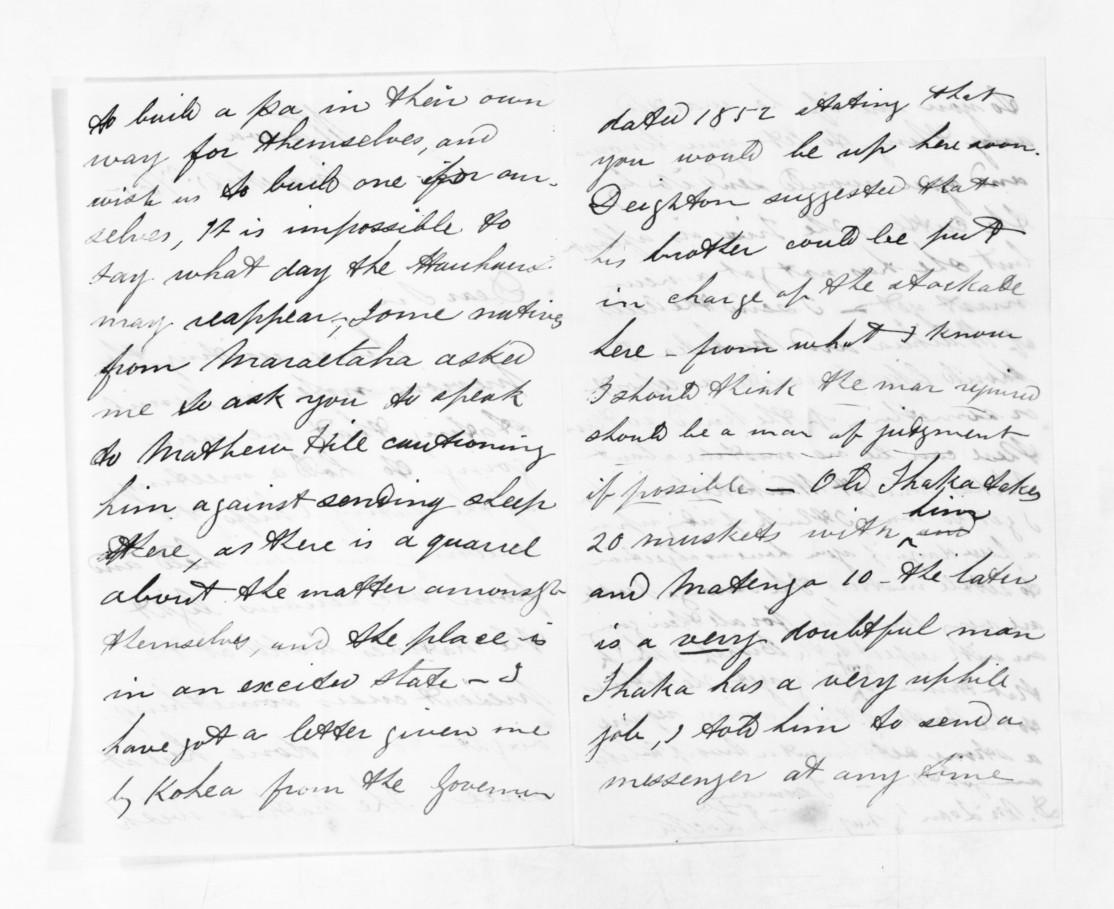 to build a pa in their own
way for themselves, and
wish us to build one for our-
selves, It is impossible to
say what day the Hauhaus
may reappear, some natives
from Maraetaha asked
me to ask you to speak
to Mathew Hill cautioning
him against sending sheep
there, as there is a quarrel
about the matter amongst
themselves, and the place is
in an excited state – I
have got a letter given me
by Kohea from the Governor
dated 1852 stating that
you would be up here soon.
Deighton suggested that
his brother could be put
in charge of the stockade
here – from what I know
I should think the man required
should be a man of judgment
if possible – Old Ihaka takes
20 muskets with him and
and Matenga 10 – the later
is a very doubtful man
Ihaka has a very uphill
job, I told him to send a
messenger at any time